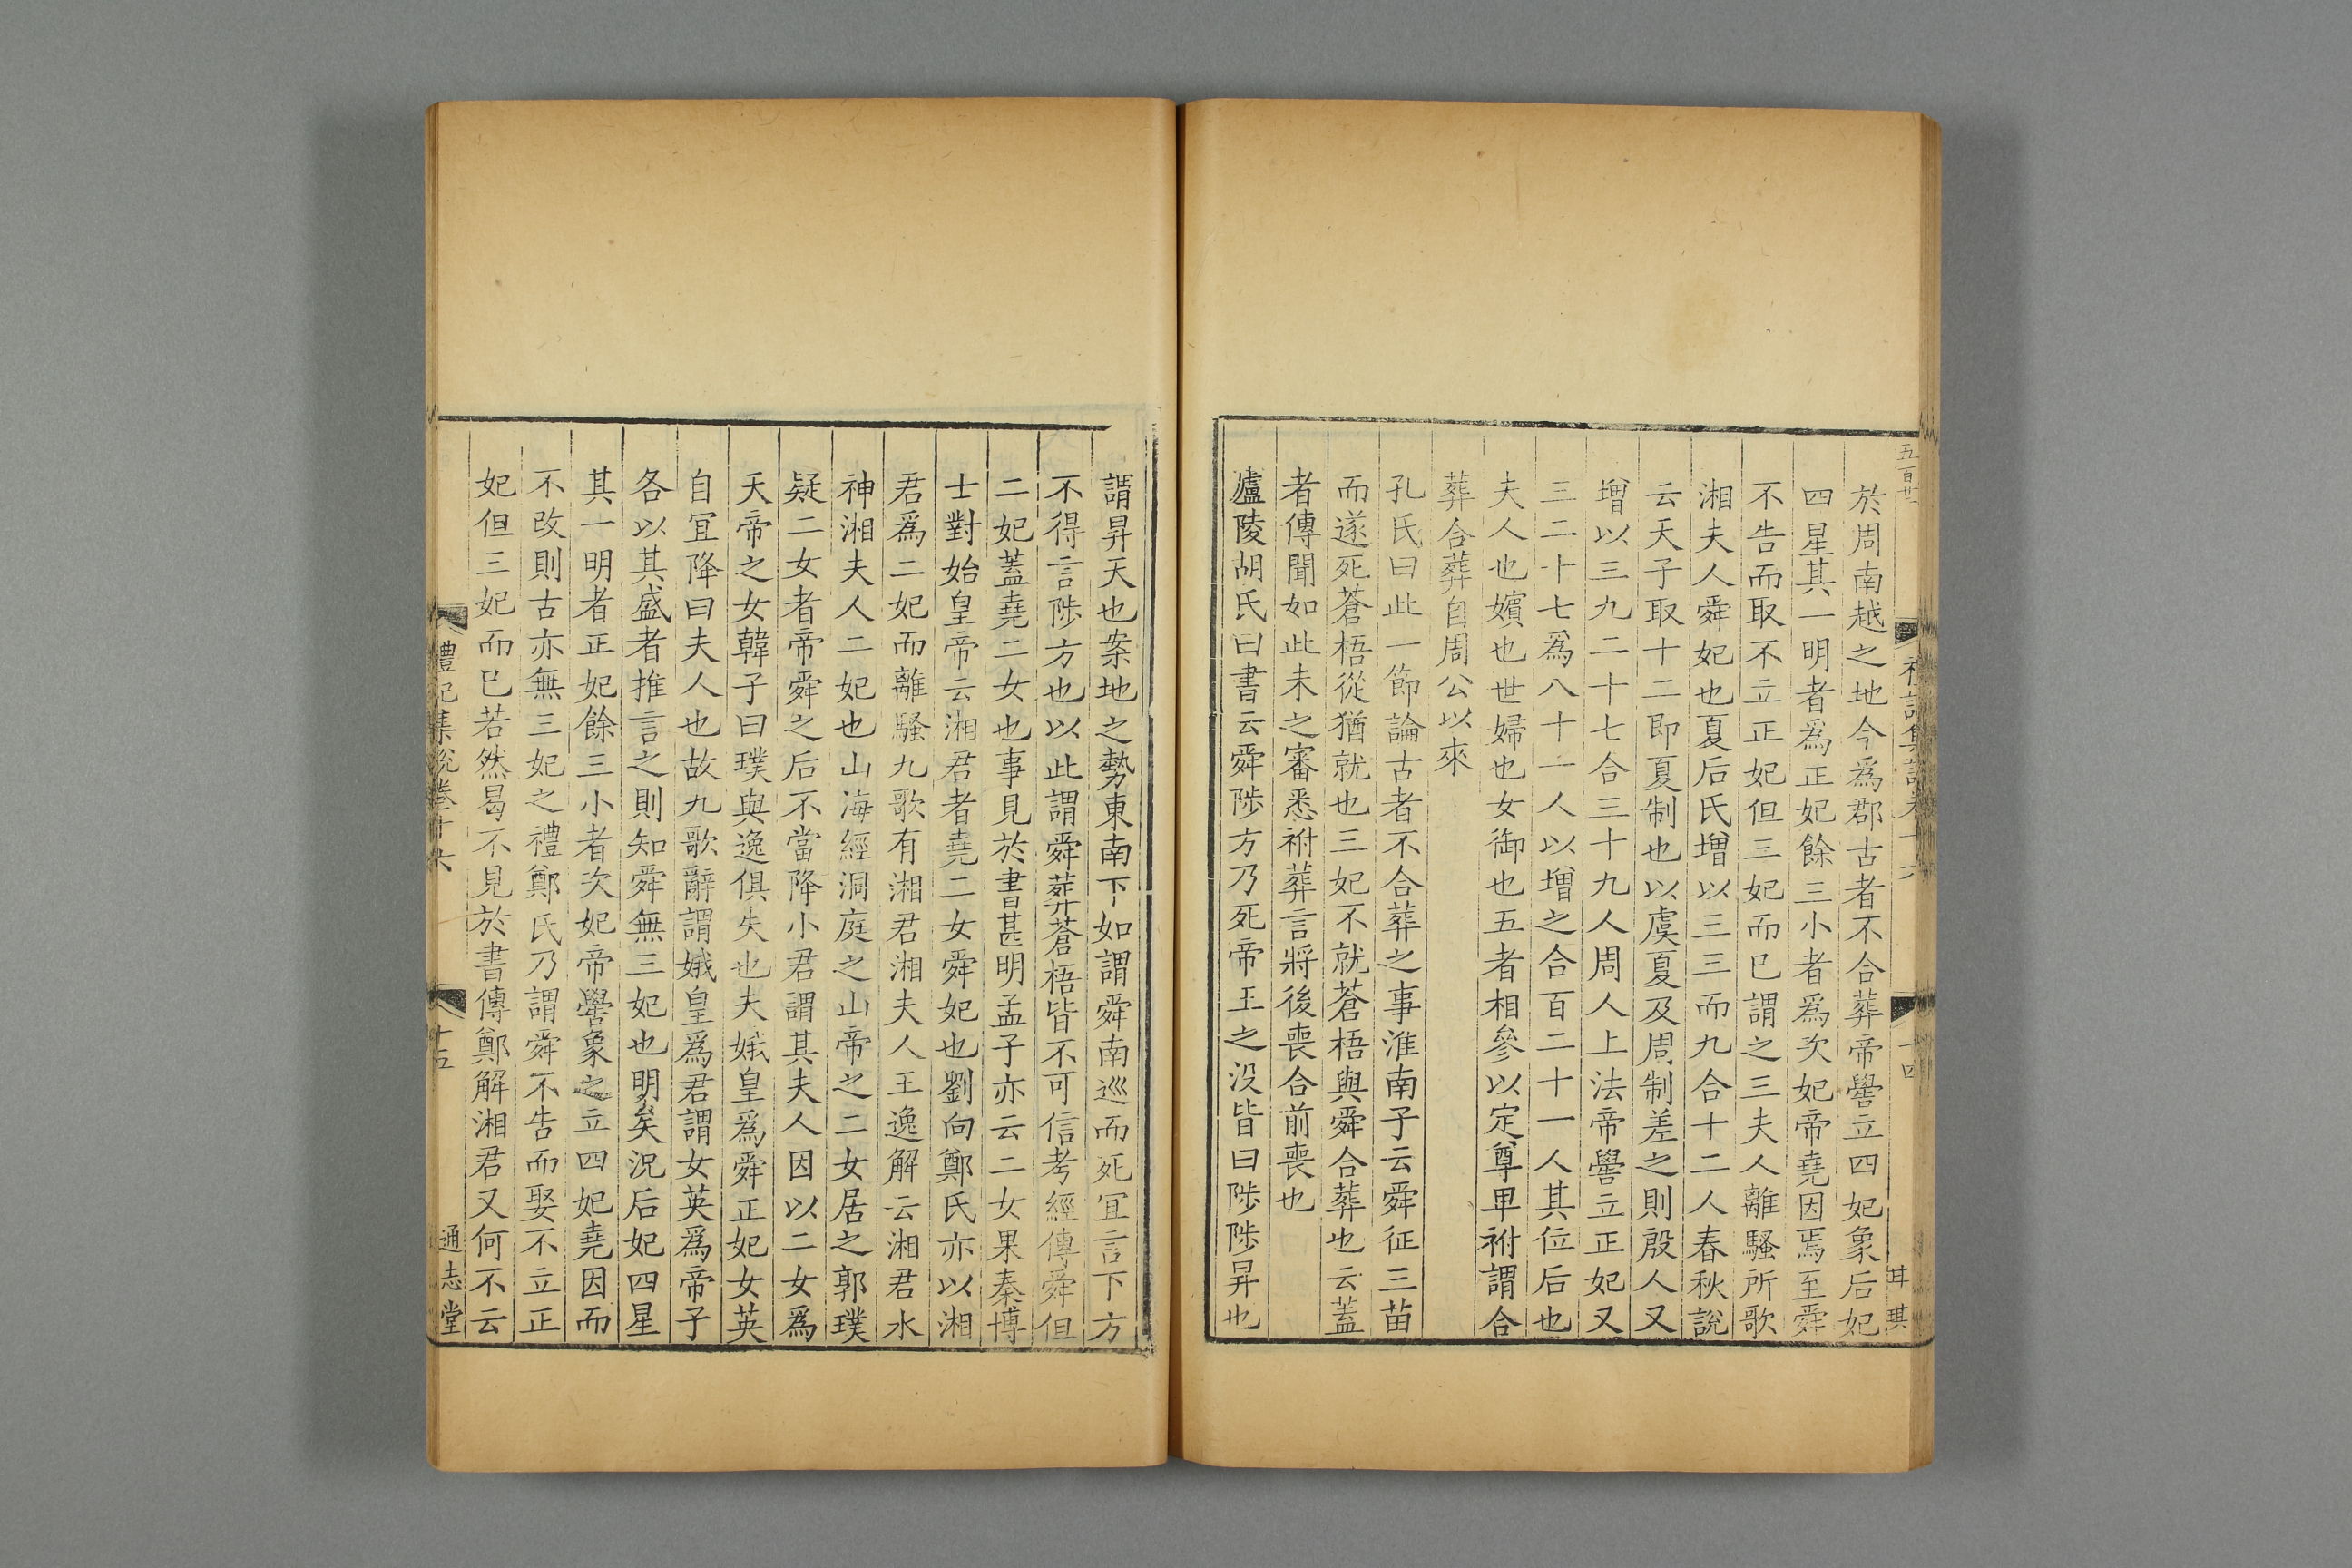 五百廿
禮記集說卷十六
十四
耳琪
於周南越之地今爲郡古者不合葬帝嚳立四妃象后妃
四星其一明者爲正妃餘三小者爲次妃帝堯因焉至舜
不告而取不立正妃但三妃而巳謂之三夫人離騷所歌
湘夫人舜妃也夏后氏增以三三而九合十二人春秋說
云天子取十二即夏制也以虞夏及周制差之則殷人又
增以三九二十七合三十九人周人上法帝嚳立正妃又
三二十七爲八十一人以增之合百二十一人其位后也
夫人也嬪也世婦也女御也五者相參以定尊卑祔謂合
葬合葬自周公以來
孔氏曰此一節論古者不合葬之事淮南子云舜征三苗
而遂死蒼梧從猶就也三妃不就蒼梧與舜合葬也云蓋
者傳聞如此未之審悉祔葬言將後喪合前喪也
廬陵胡氏曰書云舜陟方乃死帝王之没皆曰陟陟昇也
謂昇天也案地之勢東南下如謂舜南巡而死宜言下方
不得言陟方也以此謂舜葬蒼梧皆不可信考經傳舜但
二妃蓋堯二女也事見於書甚明孟子亦云二女果秦博
士對始皇帝云湘君者堯二女舜妃也劉向鄭氏亦以湘
君爲二妃而離騷九歌有湘君湘夫人王逸解云湘君水
神湘夫人二妃也山海經洞庭之山帝之二女居之郭璞
疑二女者帝舜之后不當降小君謂其夫人因以二女爲
天帝之女韓子曰璞與逸俱失也夫娥皇爲舜正妃女英
自宜降曰夫人也故九歌辭謂娥皇爲君謂女英爲帝子
各以其盛者推言之則知舜無三妃也明矣況后妃四星
其一明者正妃餘三小者次妃帝嚳象之立四妃堯因而
不改則古亦無三妃之禮鄭氏乃謂舜不告而娶不立正
妃但三妃而巳若然曷不見於書傳鄭解湘君又何不云
禮記集說卷十六
十五
通志堂